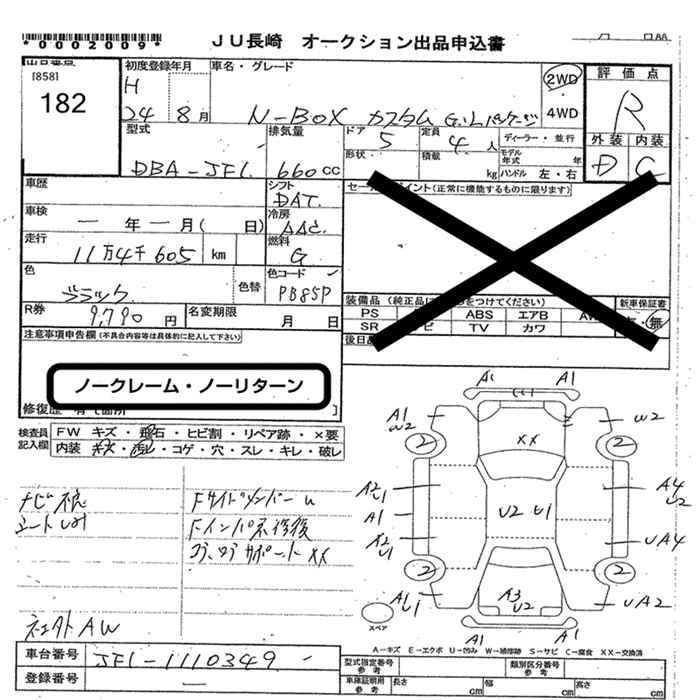 *0002009*
JU長崎 オークション出品申込書
[858]
182
初度登録年月
H
24 8 月
車名・グレード
N-BOX カスタム G.Lパッケージ
2WD
4WD
評価点
R
外装 内装
D C
型式
DBA-JF1
排気量
660 cc
ドア
5
定員
4 人
ディーラー・並行
形状
積載
kg
モデル年式 年
ハンドル 左・右
車歴
シフト
DAT
車検
一 年 一 月 ( 日)
冷房
AAC
走行
11万4千605 km
燃料
G
色
ブラック
色替
色コード
PB85P
R券
9,790 円
名変期限
月 日
イント(正常に機能するものに限ります)
装備品(純正品に をつけてください)
新車保証書
PS ABS エアB
SR TV カワ
無
注意事項申告欄(不具合内容等は具体的に記入して下さい)
ノークレーム・ノーリターン
検査員記入欄
FW キズ・飛石・ヒビ割・リペア跡・×要
内装 キズ・汚レ・コゲ・穴・スレ・キレ・破レ
ナビ不良
Fサイドメンバーu
Fインパネ修復
XX
AW
A1 A1
A1 W2
W2
2 2
XX
A2 U1
A4 U2
A1
U2 U1
A2 U1
UA4
2 2
A3 U2
A1 U1
UA2
A1 A1
スペア
A-キズ E-エクボ U-凹み W-補修跡 S-サビ C-腐食 XX-交換済
車台番号
JF1-1110349
登録番号
一
型式指定番号 参考
類別区分番号 参考
車庫証明用 参考
長さ cm
幅 cm
高さ cm